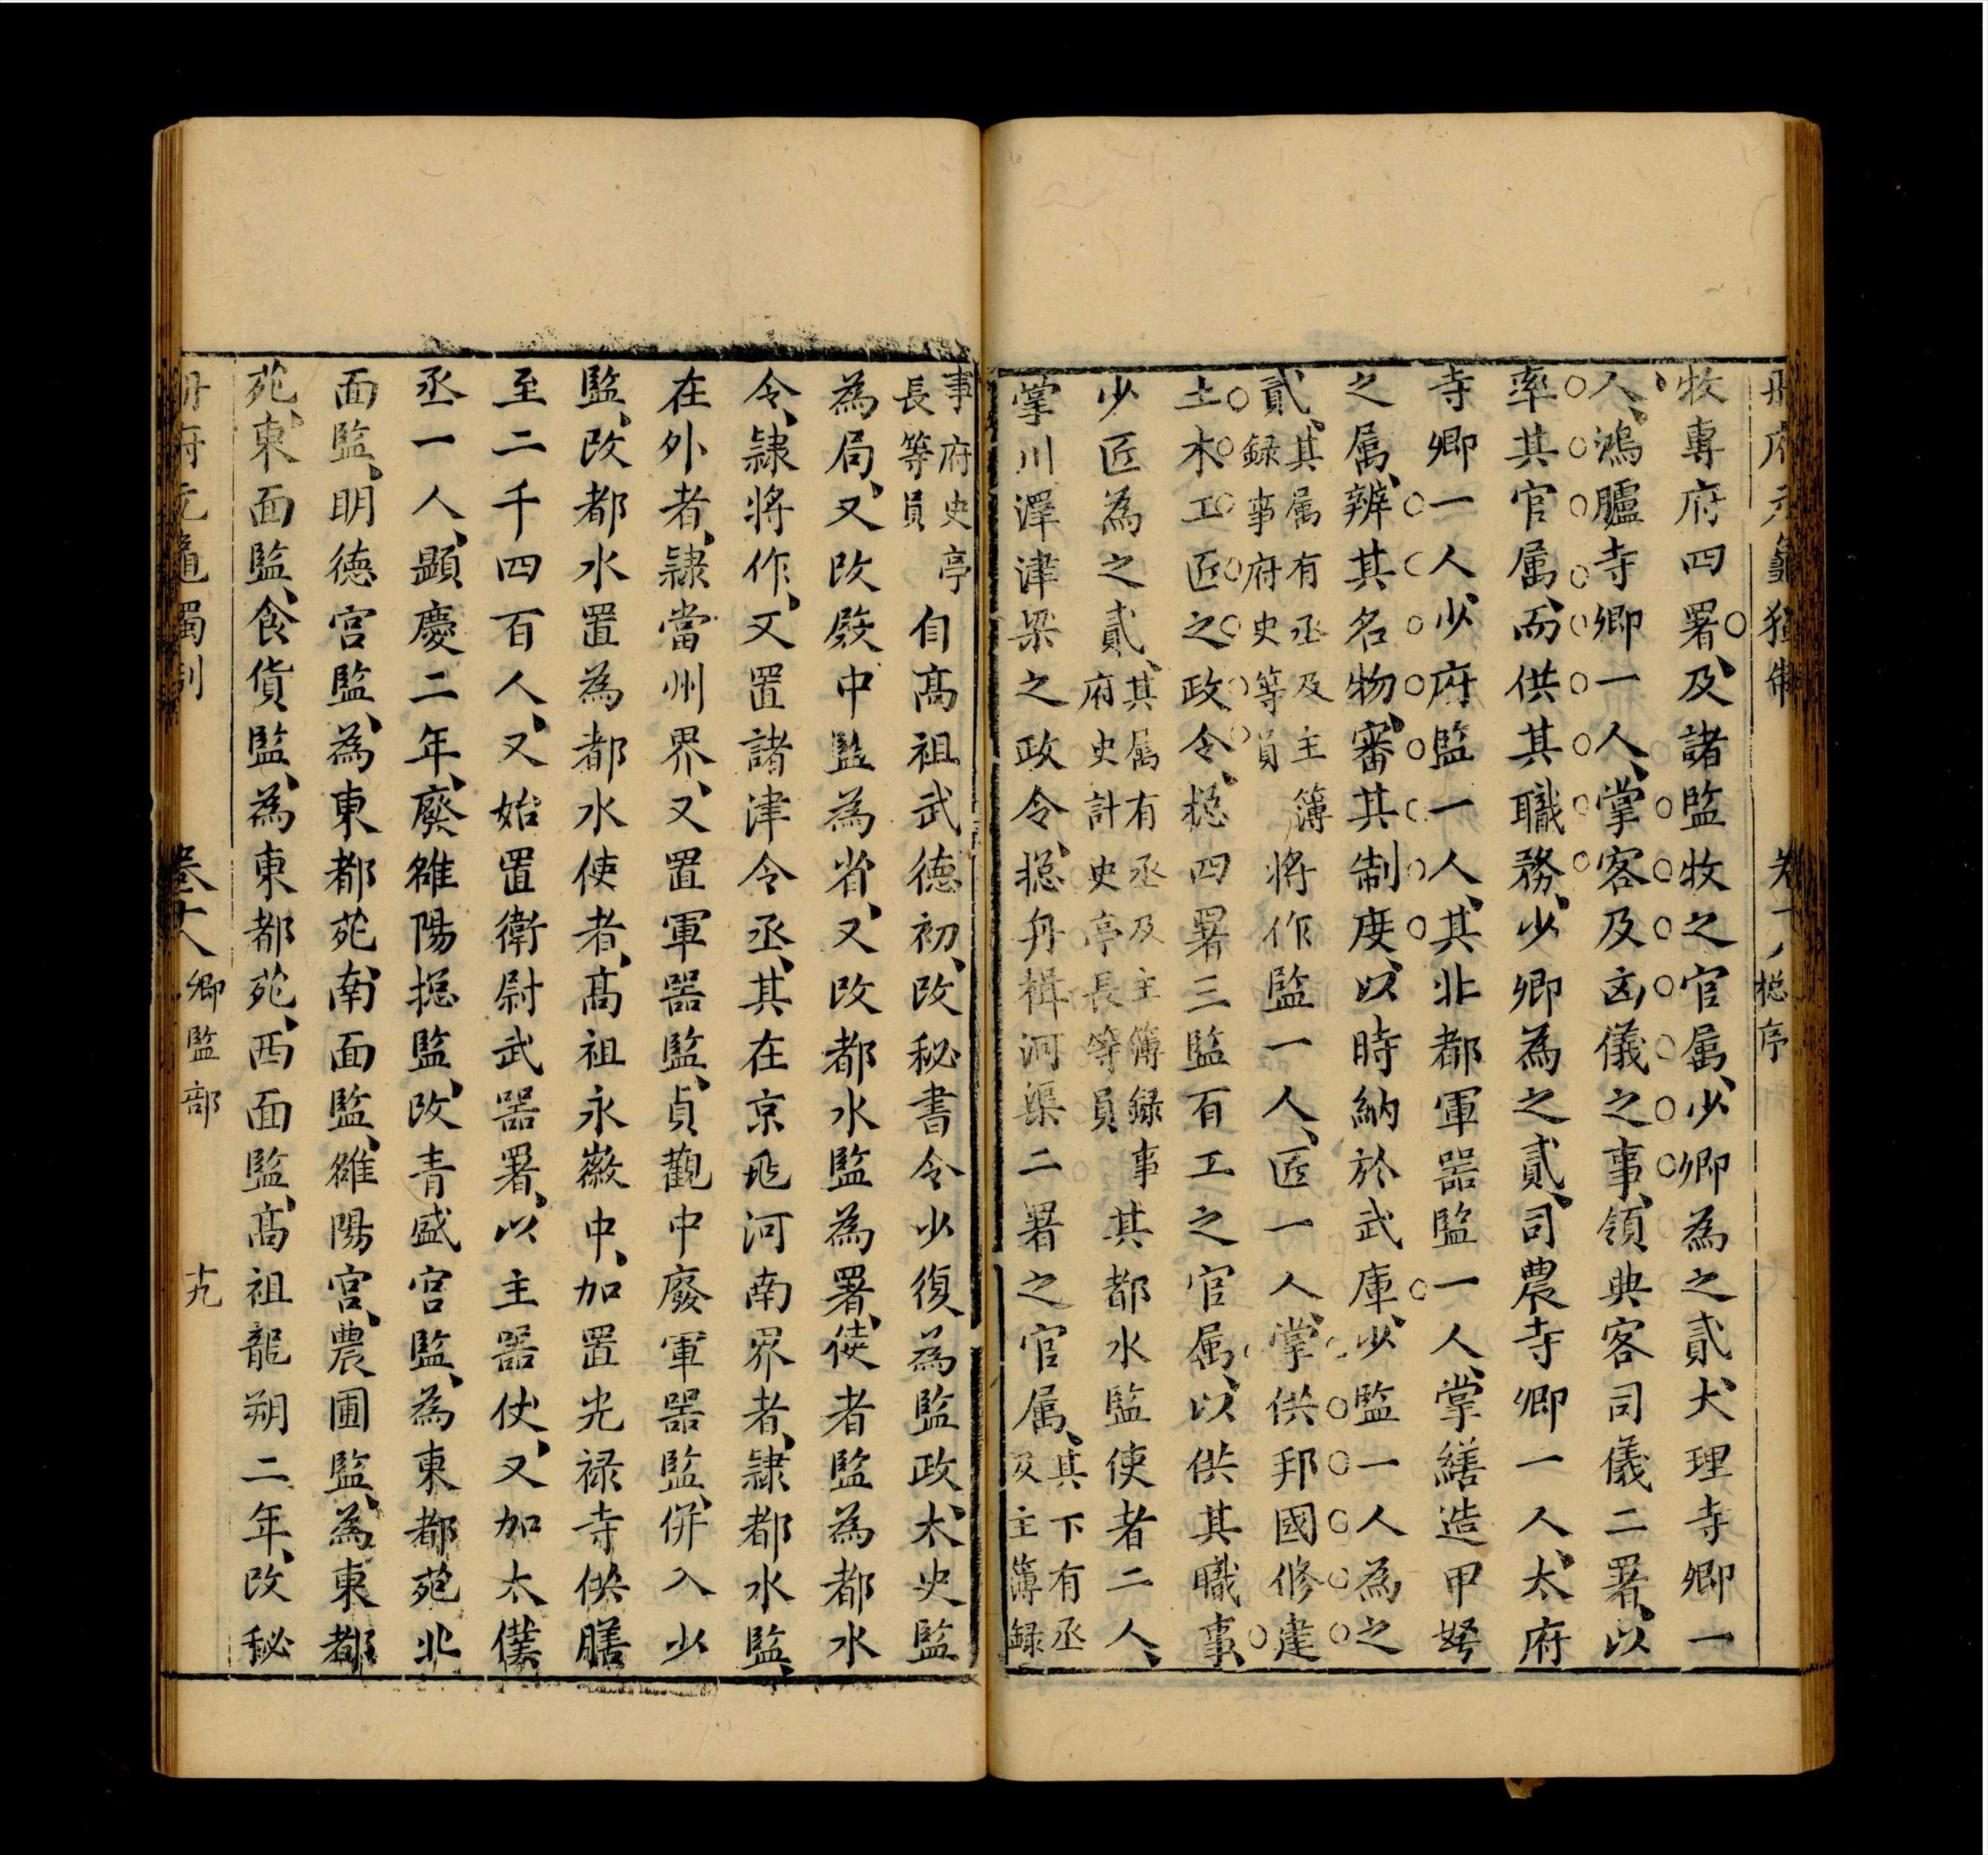 冊府元龜獨制 卷十八 捴序
牧専府四署、及諸監牧之官属、少卿為之貳、大理寺卿一
人、鴻臚寺卿一人、掌客及凶儀之事、領典客司儀二署、以
率其官属、而供其職務、少卿為之貳、司農寺卿一人、太府
寺卿一人、少府監一人、其北都軍噐監一人、掌繕造甲弩
之属、辨其名物、審其制度、以時納於武庫、少監一人為之
貳、其属有丞及主簿録事府史等員 將作監一人、匠一人、掌供邦國修建
土木工匠之政令、捴四署三監百工之官属、以供其職事、
少匠為之貳、其属有丞及主簿録事府史計史亭長等員 其都水監使者二人、
掌川澤津梁之政令、捴舟楫河渠二署之官属、其下有丞及主簿録
事府史亭長等員 自髙祖武德初、改秘書令少復為監政、太史監
為局、又改殿中監為省、又改都水監為署、使者監為都水
令、隷將作、又置諸津令丞、其在京兆河南界者、隷都水監、
在外者、隷當州界、又置軍噐監、貞觀中廢軍噐監、併入少
監、改都水置為都水使者、髙祖永徽中、加置光禄寺供膳
至二千四百人、又始置衛尉武噐署、以主噐仗、又加太僕
丞一人、顯慶二年、廢雒陽捴監、改青盛宫監、為東都苑北
面監、明徳宫監、為東都苑南面監、雒陽宫農圃監、為東都
苑、東面監、食貨監、為東都苑、西面監、髙祖龍朔二年、改秘
冊府元龜獨制 卷十八 卿監部 十九